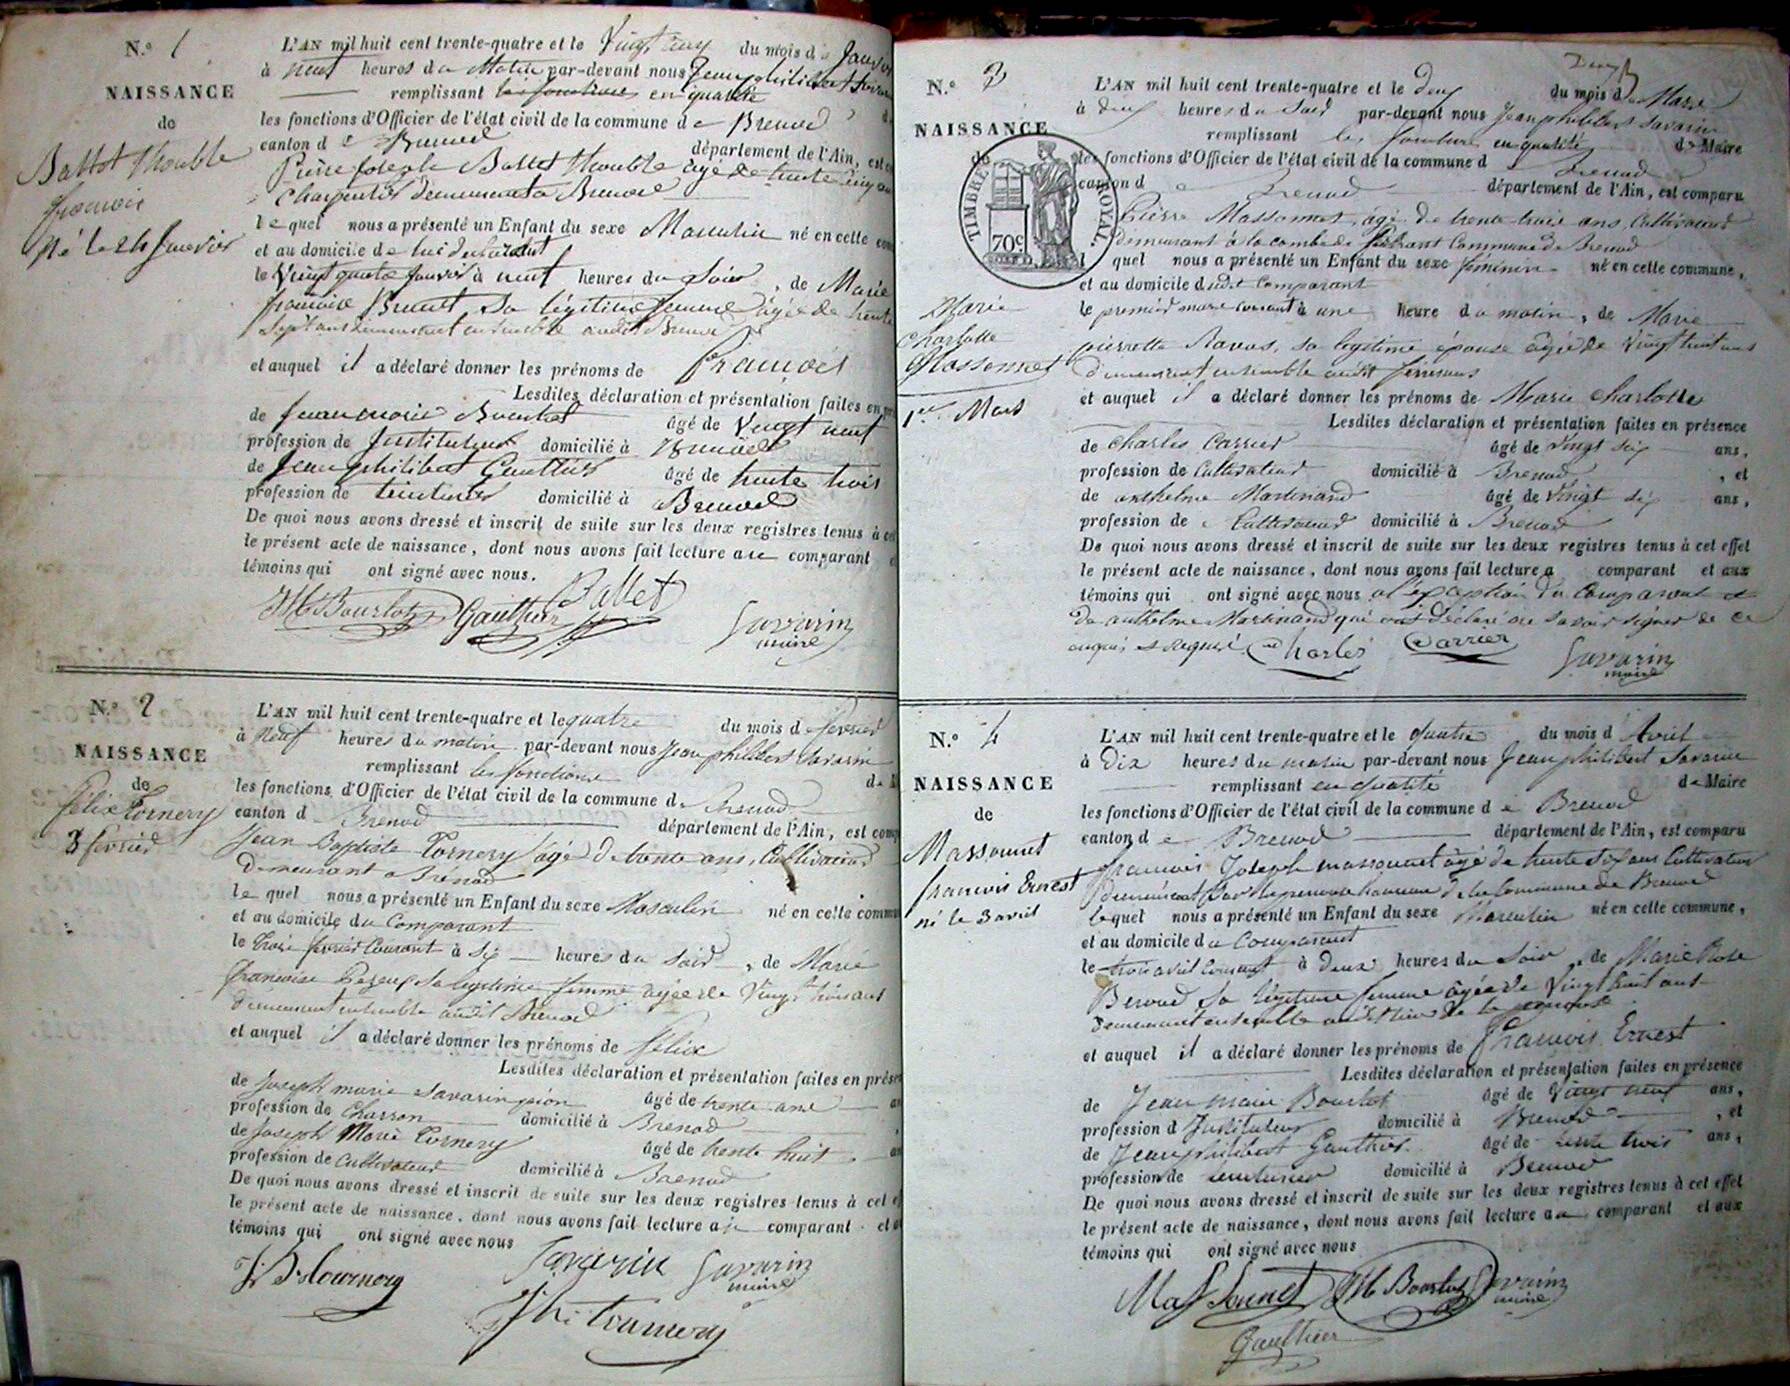 N.º 1
NAISSANCE
de
Ballet Thouble
françois
Né le 24 Janvier
L'AN mil huit cent trente-quatre et le Vingt cinq du mois de Janvier
à neuf heures du Matin par-devant nous Jean philibert Savarin
remplissant les fonctions en qualité
les fonctions d'Officier de l'état civil de la commune de Brenod
canton de Brenod département de l'Ain, est
Pierre Joseph Ballet Thouble âgé de trente cinq ans
Charpentier demeurant a Brenod
le quel nous a présenté un Enfant du sexe Masculin né en cette
et au domicile de lui déclarant
le Vingt quatre Janvier à neuf heures du Soir, de Marie
françoise Brunet Sa légitime femme âgée de trente
Sept ans demeurant ensemble audit Brenod
et auquel il a déclaré donner les prénoms de François
Lesdites déclaration et présentation faites en
de Jean marie Bourlot âgé de Vingt neuf
profession de Instituteur domicilié à Brenod
de Jean philibert Gauthier âgé de trente trois
profession de teinturier domicilié à Brenod
De quoi nous avons dressé et inscrit de suite sur les deux registres tenus à
le présent acte de naissance, dont nous avons fait lecture au comparant
témoins qui ont signé avec nous.
JM Bourlot Gauthier Ballet
Savarin
maire
N.º 2
NAISSANCE
de
Félix Tornery
3 février
L'AN mil huit cent trente-quatre et le quatre du mois de février
à Neuf heures du matin par-devant nous Jean philibert Savarin
remplissant les fonctions de
les fonctions d'Officier de l'état civil de la commune de Brenod
canton d Brenod département de l'Ain, est
Jean Baptiste Tornery âgé de trente ans, Cultivateur
demeurant a Brénod
le quel nous a présenté un Enfant du sexe Masculin né en cette
et au domicile du Comparant
le trois février Courant à six heures du Soir, de Marie
françoise sa legitime femme agée de Vingt trois ans
demeurant ensemble audit Brenod
et auquel il a déclaré donner les prénoms de félix
Lesdites déclaration et présentation faites en
de Joseph marie Savarin pion âgé de trente
profession de Charron domicilié à Brenod
de Joseph Marie Tornery âgé de trente huit
profession de Cultivateur domicilié à Brenod
De quoi nous avons dressé et inscrit de suite sur les deux registres tenus à cet
le présent acte de naissance, dont nous avons fait lecture au comparant et
témoins qui ont signé avec nous
J. B. Tournery Savarin Savarin
maire
Tournery
N.º 3
NAISSANCE
de
TIMBRE ROYAL.
70c
Marie
Charlotte
Massonnet
1er Mars
L'AN mil huit cent trente-quatre et le deux du mois de Mars
à deux heures du Soir par-devant nous Jean philibert Savarin
remplissant les fonctions en qualité de Maire
les fonctions d'Officier de l'état civil de la commune d Brenod
canton d e Brenod département de l'Ain, est comparu
Pierre Massonnet, âgé de trente trois ans, Cultivateur
demeurant à la combe de Commune de Brenod
l quel nous a présenté un Enfant du sexe féminin né en cette commune,
et au domicile dudit Comparant
le premier mars courant à une heure du matin, de Marie
pierrette Ravas, sa legitime épouse âgée de Vingt huit ans
demeurant ensemble audit
et auquel il a déclaré donner les prénoms de Marie Charlotte
Lesdites déclaration et présentation faites en présence
de Charles Carrier âgé de Vingt six ans,
profession de Cultivateur domicilié à Brenod, et
de anthelme Martinand âgé de Vingt six ans,
profession de Cultivateur domicilié à Brenod
De quoi nous avons dressé et inscrit de suite sur les deux registres tenus à cet effet
le présent acte de naissance, dont nous avons fait lecture a comparant et aux
témoins qui ont signé avec nous a l'exception du Comparant et
de anthelme Martinand qui ont déclaré ne savoir signer de ce
enquis et requis. Charles Carrier
Savarin
maire
N.º 4
NAISSANCE
de
Massonnet
françois Ernest
né le 3 avril
L'AN mil huit cent trente-quatre et le quatre du mois d Avril
à Dix heures du matin par-devant nous Jean philibert Savarin
remplissant en qualité de Maire
les fonctions d'Officier de l'état civil de la commune d e Brenod
canton d e Brenod département de l'Ain, est comparu
françois Joseph massonnet âgé de trente six ans Cultivateur
demeurant hameau de la Commune de Brenod
lequel nous a présenté un Enfant du sexe Masculin né en cette commune,
et au domicile du Comparant
le trois avril courant à deux heures du Soir, de Marie Rose
Beroud Sa légitime femme âgée de Vingt huit ans
demeurant ensemble audit lieu de la
et auquel il a déclaré donner les prénoms de François Ernest
Lesdites déclaration et présentation faites en présence
de Jean marie Bourlot âgé de Vingt neuf ans,
profession d Instituteur domicilié à Brenod, et
de Jean philibert Gauthier âgé de trente trois ans,
profession de teinturier domicilié à Brenod
De quoi nous avons dressé et inscrit de suite sur les deux registres tenus à cet effet
le présent acte de naissance, dont nous avons fait lecture au comparant et aux
témoins qui ont signé avec nous
Massonnet JM Bourlot Savarin
maire
Gauthier